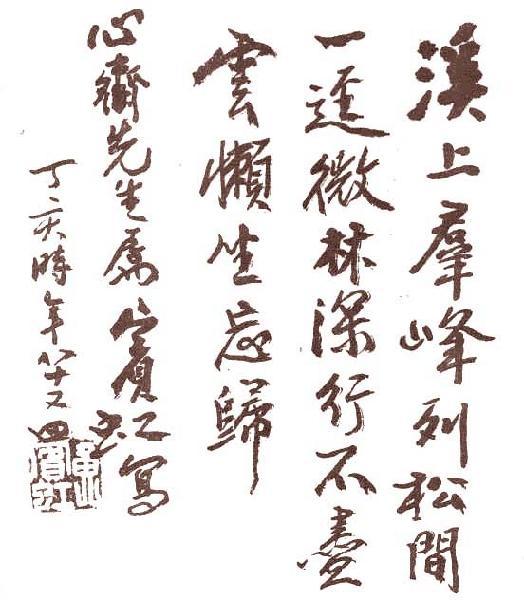 溪上羣峰列松間
一逕微林深行不盡
雲懶坐忘歸
心齋先生屬 賓虹寫
丁亥時年八十又四
黃山賓虹